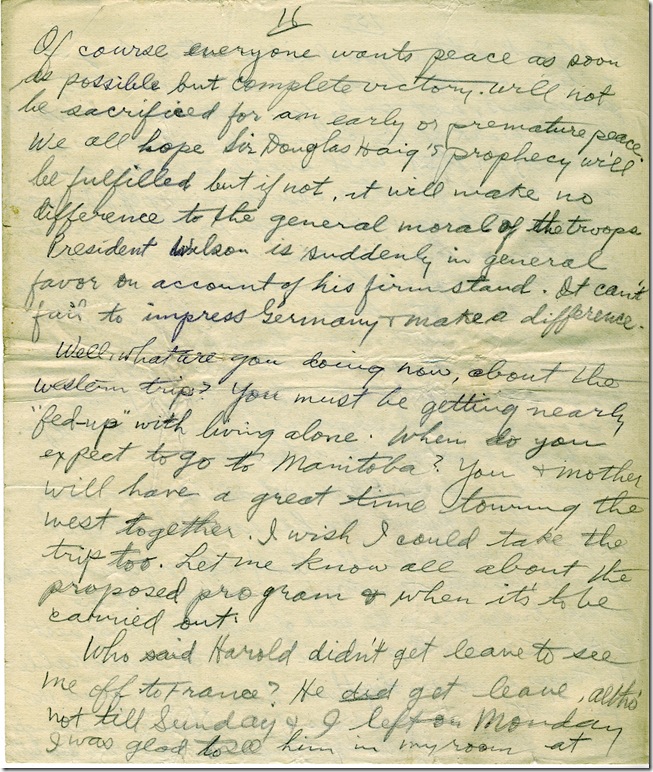 16
Of course everyone wants peace as soon
as possible but complete victory will not
be sacrificed for an early or premature peace.
We all hope Sir Douglas Haig's prophecy will
be fulfilled but if not, it will make no
difference to the general moral of the troops.
President Wilson is suddenly in general
favor on account of his firm stand. It can't
fail to impress Germany & make a difference.
Well, what are you doing now, about the
western trip? You must be getting nearly
"fed-up" with living alone. When do you
expect to go to Manitoba? You & mother
will have a great time touring the
west together. I wish I could take the
trip too. Let me know all about the
proposed program & when it's to be
carried out.
Who said Harold didn't get leave to see
me off to France? He did get leave, altho'
not till Sunday & I left on Monday
I was glad to see him in my room at